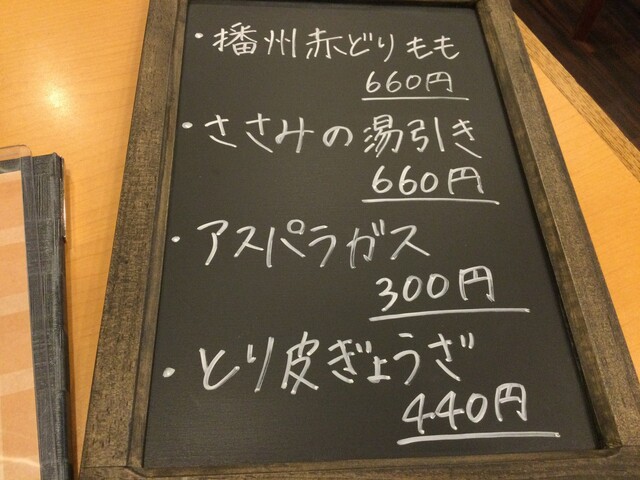 ・播州赤どりもも
660円
・ささみの湯引き
660円
・アスパラガス
300円
・とり皮ぎょうざ
440円